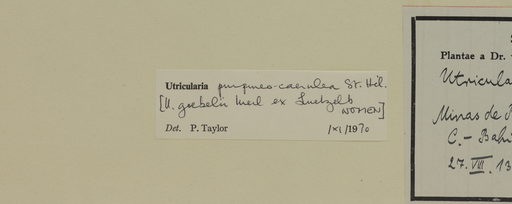 Utricularia purpureo-caerulea St. Hil.
[U. goebelii Merl ex Luetzelb
NOMEN]
Det. P. Taylor /XI/1970
Plantae a Dr.
Utricula
Minas de
C.- Bahi
27. VIII. 13